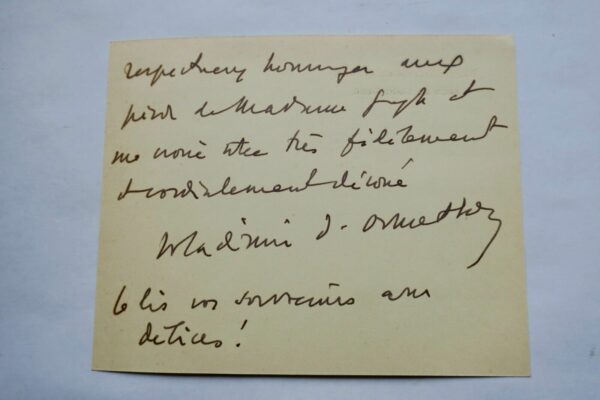 respectueux hommages aux
pieds de Madame Gregh et
me croire votre très fidèlement
et cordialement dévoué
Wladimir d'Ormesson
Je lis vos souvenirs avec
délices!